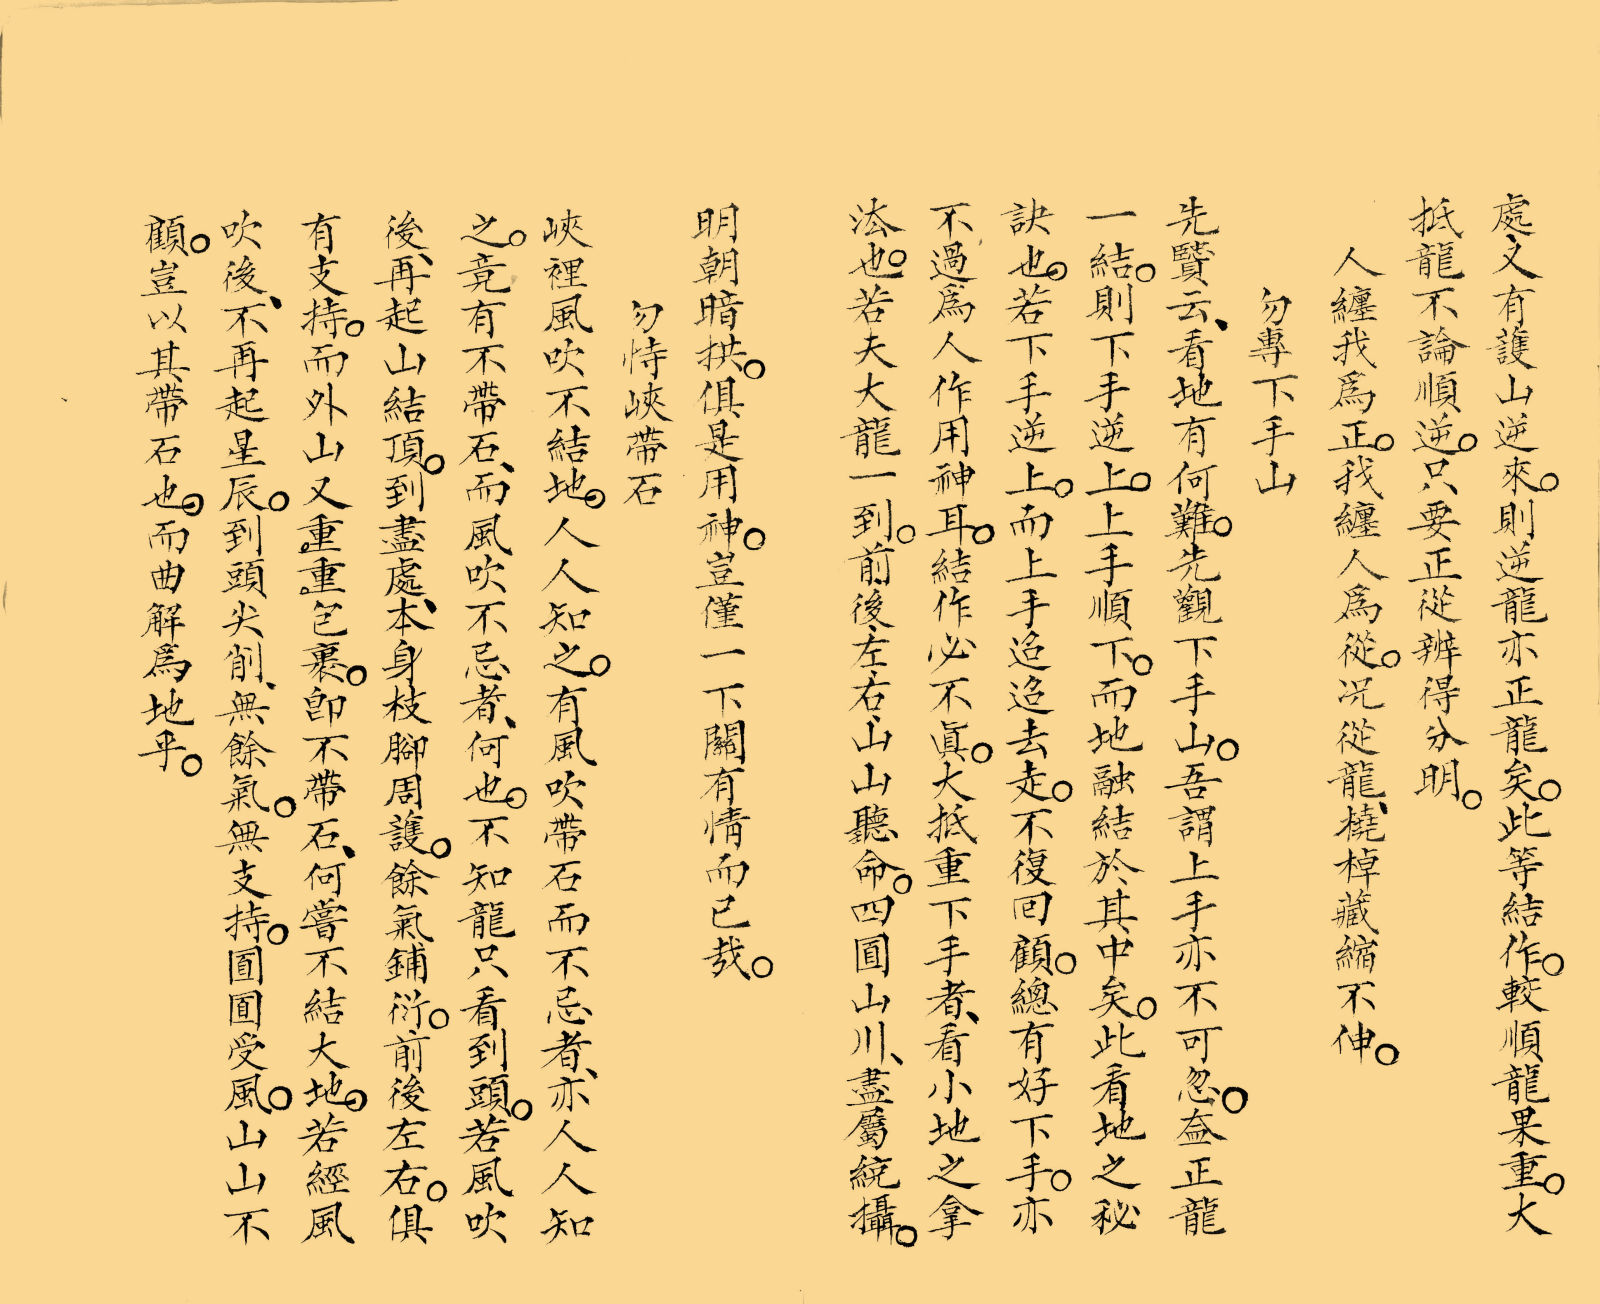 處又有護山逆來。則逆龍亦正龍矣。此等結作。較順龍果重。大
抵龍不論順逆。只要正從辨得分明。
人纏我爲正。我纏人爲從。况從龍、橈棹藏縮不伸。
勿專下手山
先賢云、看地有何難。先觀下手山。吾謂上手亦不可忽。盖正龍
一結。則下手逆上。上手順下。而地融結於其中矣。此看地之秘
訣也。若下手逆上。而上手迢迢去走。不復囘顧。總有好下手。亦
不過爲人作用神耳。結作必不眞。大抵重下手者、看小地之拿
法也。若夫大龍一到。前後左右、山山聽命。四圍山川、盡屬統攝。
明朝暗拱。俱是用神。豈僅一下關有情而已哉。
勿恃峽帶石
峽裡風吹不結地。人人知之。有風吹帶石而不忌者、亦人人知
之。竟有不帶石、而風吹不忌者、何也。不知龍只看到頭。若風吹
後、再起山結頂。到盡處、本身枝腳周護。餘氣鋪衍。前後左右。俱
有支持。而外山又重重包裹。卽不帶石、何嘗不結大地。若經風
吹後、不再起星辰。到頭尖削、無餘氣。無支持。圍圍受風。山山不
顧。豈以其帶石也。而曲解爲地乎。